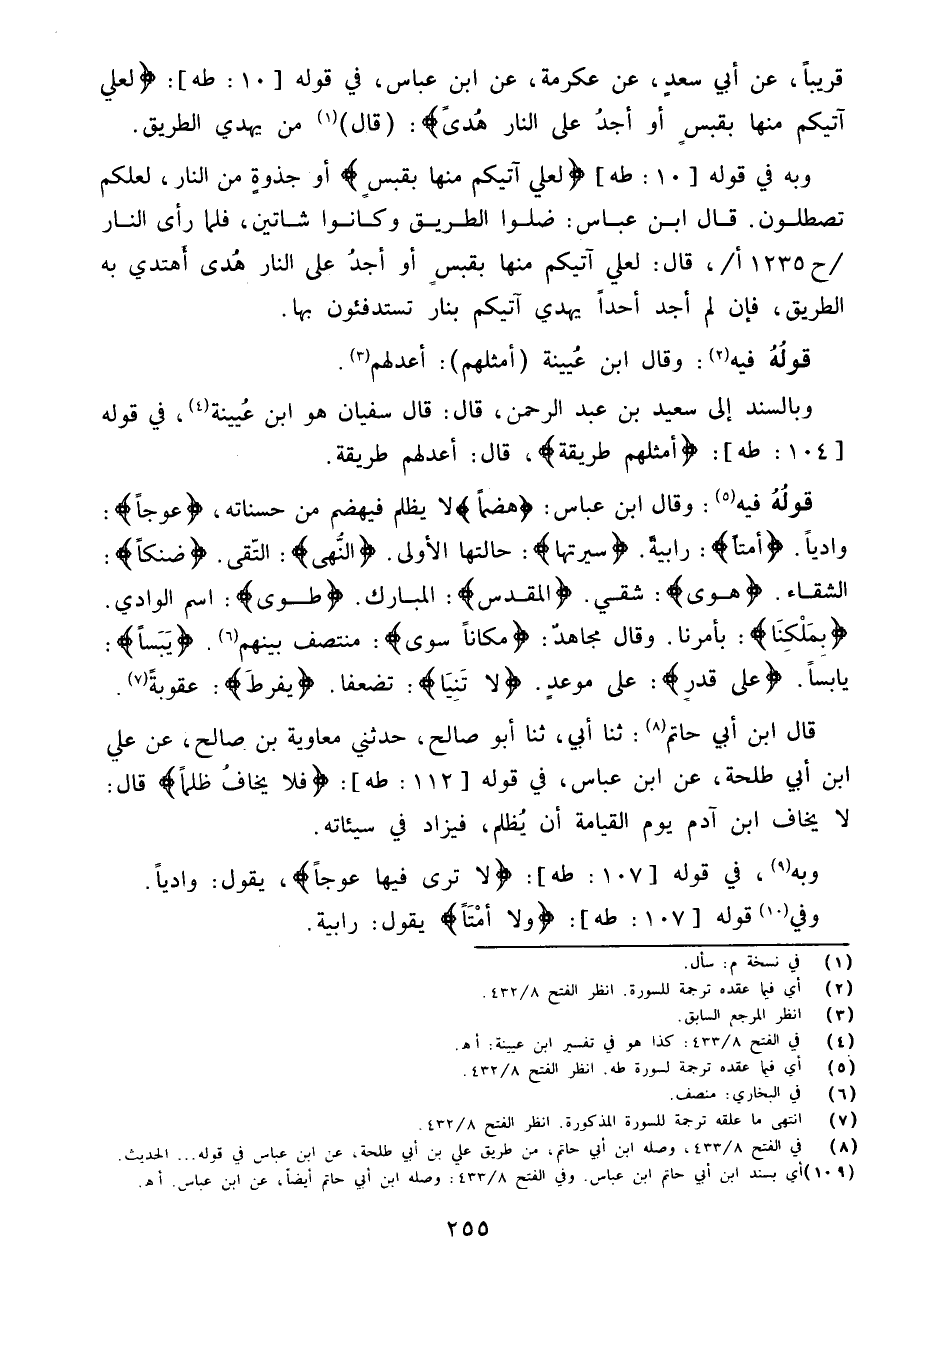 قريباً، عن أبي سعدٍ، عن عكرمة، عن ابن عباس، في قوله [ ١٠ : طه]: ﴿لعلي
آتيكم منها بقبسٍ أو أجدُ على النار هُدىً﴾: (قال)(١) من يهدي الطريق.
وبه في قوله [ ١٠ : طه] ﴿لعلي آتيكم منها بقبسٍ﴾ أو جذوةٍ من النار، لعلكم
تصطلون. قال ابن عباس: ضلوا الطريق وكانوا شاتين، فلما رأى النار
/ح ١٢٣٥ أ/، قال: لعلي آتيكم منها بقبسٍ أو أجدُ على النار هُدى أهتدي به
الطريق، فإن لم أجد أحداً يهدي آتيكم بنار تستدفئون بها.
قولُهُ فيه(٢): وقال ابن عُيينة (أمثلهم): أعدلهم(٣).
وبالسند إلى سعيد بن عبد الرحمن، قال: قال سفيان هو ابن عُيينة(٤)، في قوله
[ ١٠٤ : طه]: ﴿أمثلهم طريقة﴾، قال: أعدلهم طريقة.
قولُهُ فيه(٥): وقال ابن عباس: ﴿هضماً﴾ لا يظلم فيهضم من حسناته، ﴿عوجاً﴾:
وادياً. ﴿أمتاً﴾: رابيةً. ﴿سيرتها﴾: حالتها الأولى. ﴿النُّهى﴾: التّقى. ﴿ضنكاً﴾:
الشقاء. ﴿هوى﴾: شقي. ﴿المقدس﴾: المبارك. ﴿طوى﴾: اسم الوادي.
﴿بِمَلْكِنَا﴾: بأمرنا. وقال مجاهدٌ: ﴿مكاناً سوى﴾: منتصف بينهم(٦). ﴿يَبَساً﴾:
يابساً. ﴿على قدرٍ﴾: على موعدٍ. ﴿لا تَنِيَا﴾: تضعفا. ﴿يفرطَ﴾: عقوبةً(٧).
قال ابن أبي حاتم(٨): ثنا أبي، ثنا أبو صالح، حدثني معاوية بن صالح، عن علي
ابن أبي طلحة، عن ابن عباس، في قوله [ ١١٢ : طه]: ﴿فلا يخافُ ظلماً﴾ قال:
لا يخاف ابن آدم يوم القيامة أن يُظلم، فيزاد في سيئاته.
وبه(٩)، في قوله [ ١٠٧ : طه]: ﴿لا ترى فيها عوجاً﴾، يقول: وادياً.
وفي(١٠) قوله [ ١٠٧ : طه]: ﴿ولا أمْتَاً﴾ يقول: رابية.
(١) في نسخة م: سأل.
(٢) أي فيما عقده ترجمة للسورة. انظر الفتح ٤٣٢/٨.
(٣) انظر المرجع السابق.
(٤) في الفتح ٤٣٣/٨: كذا هو في تفسير ابن عيينة: أهـ.
(٥) أي فيما عقده ترجمة لسورة طه. انظر الفتح ٤٣٢/٨.
(٦) في البخاري: منصف.
(٧) انتهى ما علقه ترجمة للسورة المذكورة. انظر الفتح ٤٣٢/٨.
(٨) في الفتح ٤٣٣/٨، وصله ابن أبي حاتم، من طريق علي بن أبي طلحة، عن ابن عباس في قوله... الحديث.
(٩ ١٠) أي بسند ابن أبي حاتم ابن عباس. وفي الفتح ٤٣٣/٨: وصله ابن أبي حاتم أيضاً، عن ابن عباس. أهـ.
٢٥٥